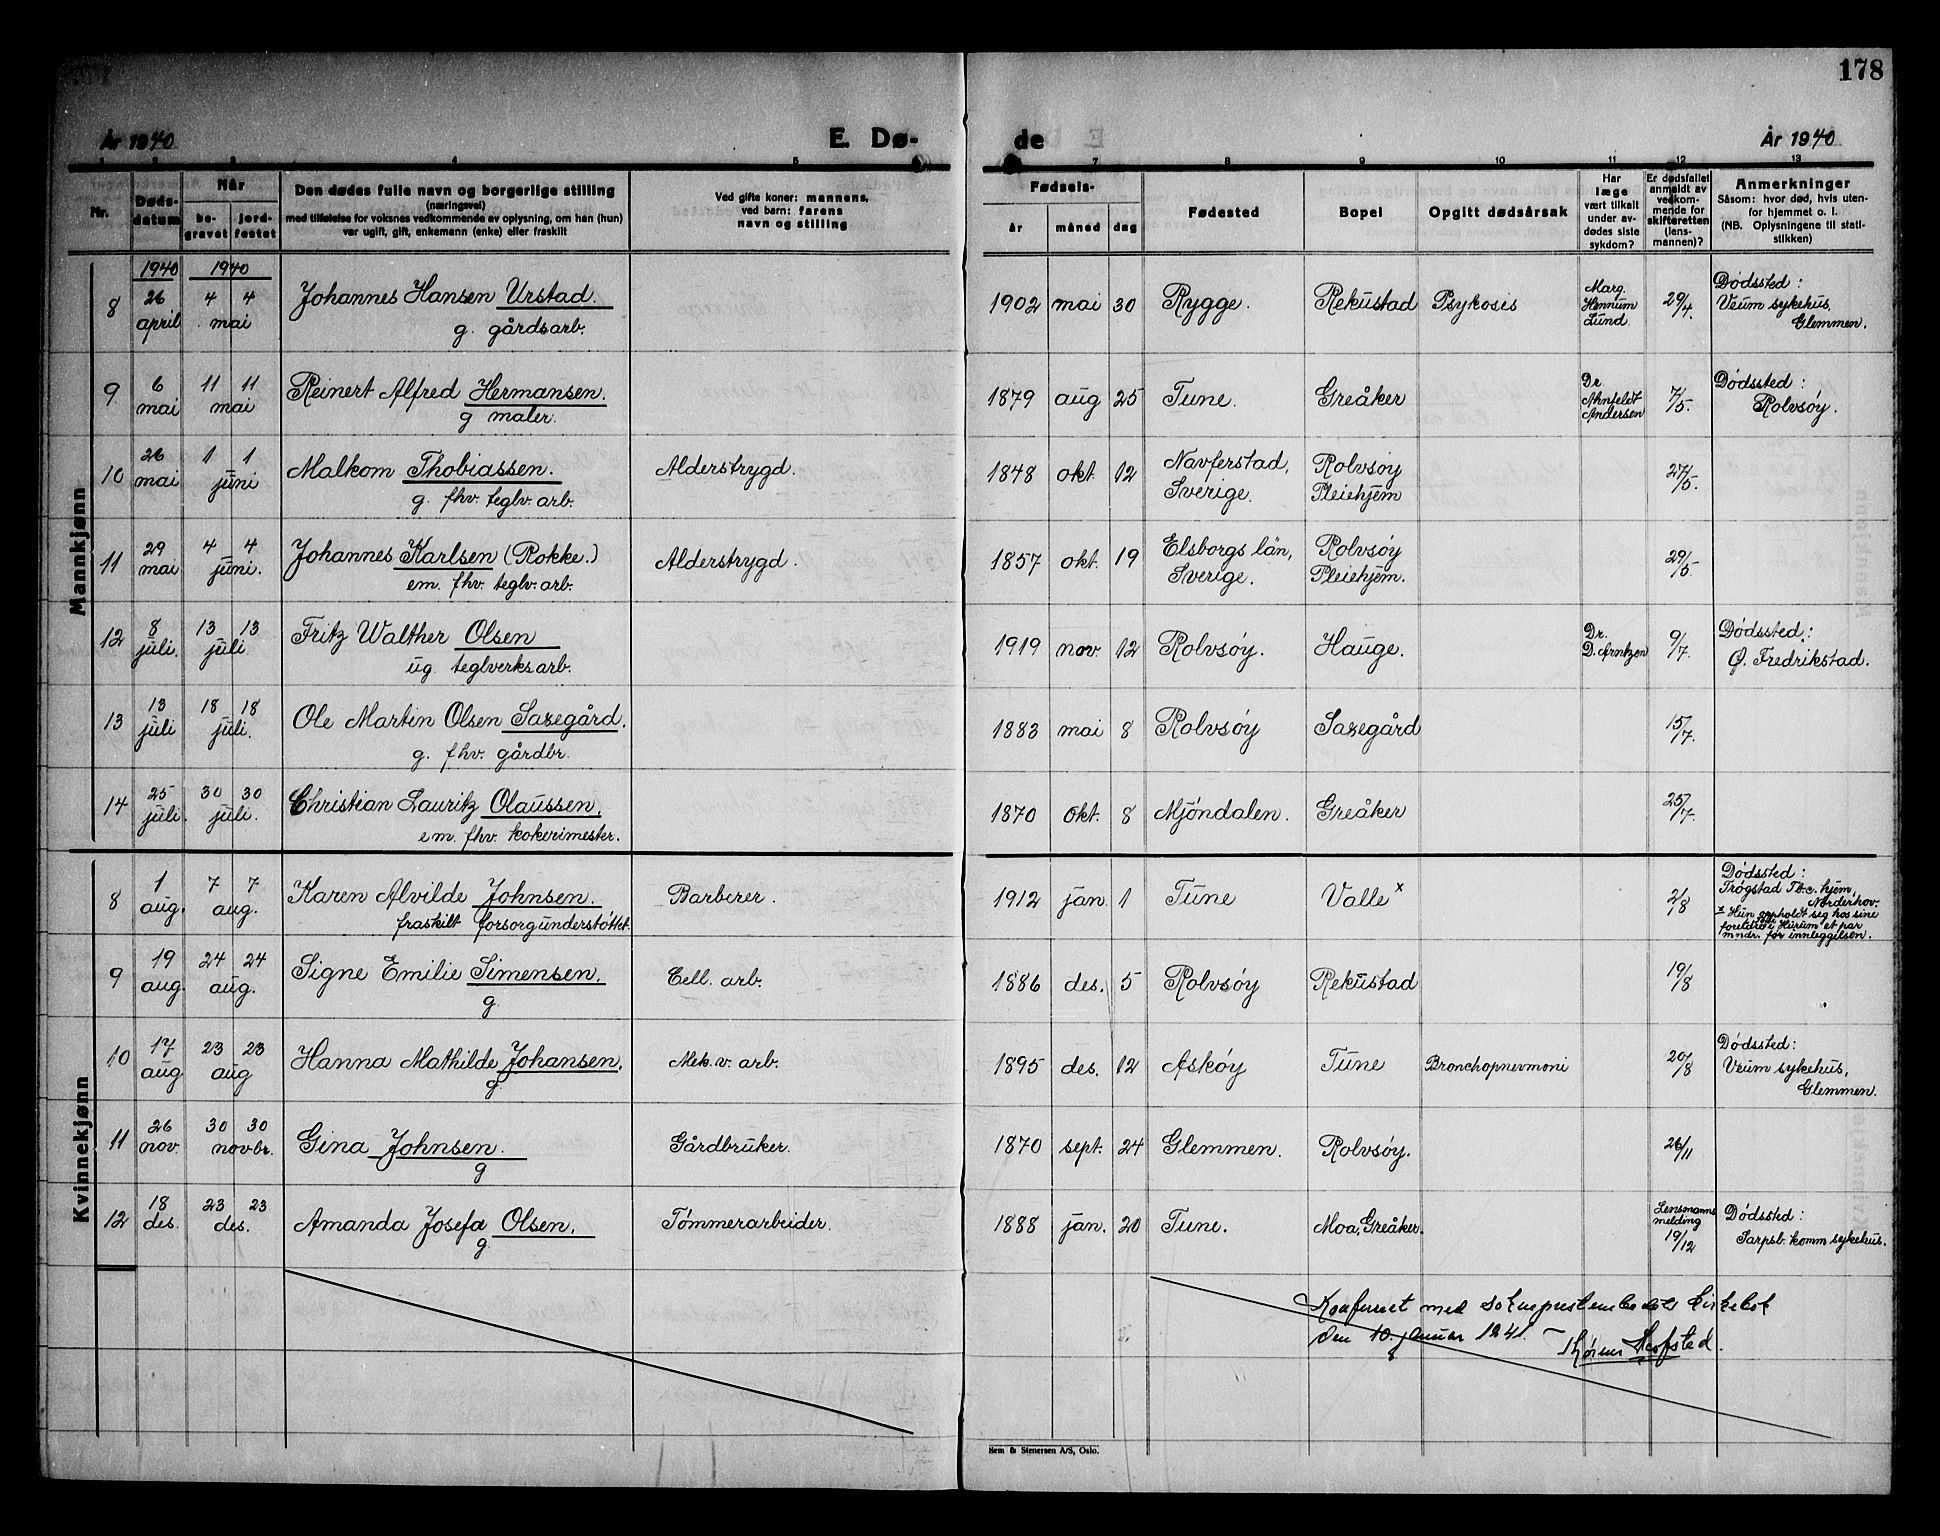 178
År 1940 E. Dø- de År 1940
1 2 3 4 5 7 8 9 10 11 12 13
Nr.
Døds-
datum
Når
be-
gravet
jord-
festet
Den dødes fulle navn og borgerlige stilling
(næringsvei)
med tilføielse for voksnes vedkommende av oplysning, om han (hun)
var ugift, gift, enkemann (enke) eller fraskilt
Ved gifte koner: mannens,
ved barn: farens
navn og stilling
Fødsels-
år måned dag
Fødested
Bopel
Opgitt dødsårsak
Har
læge
vært tilkalt
under av-
dødes siste
sykdom?
Er dødsfallet
anmeldt av
vedkom-
mende for
skifteretten
(lens-
mannen)?
Anmerkninger
Såsom: hvor død, hvis uten-
for hjemmet o. l.
(NB. Oplysningene til stati-
stikken)
Mannkjønn
1940 1940
8 26 april 4 4 mai Johannes Hansen Urstad. 1902 mai 30 Rygge. Rekustad Psykosis Marg. Hennum Lund. 29/4. Dødssted:
g. gårdsarb. Veum sykehus,
Glemmen.
9 6 mai 11 11 mai Reinert Alfred Hermansen. 1879 aug 25 Tune. Greåker Dr Ahnfeldt Andersen 7/5. Dødssted:
g maler. Rolvsøy.
10 26 mai 1 1 juni Malkom Thobiassen. Alderstrygd. 1848 okt. 12 Navferstad, Rolvsøy 27/5.
g. fhv. teglv. arb. Sverige. Pleiehjem
11 29 mai 4 4 juni. Johannes Karlsen (Rokke.) Alderstrygd. 1857 okt. 19 Elsborgs län, Rolvsøy 29/5.
em. fhv. teglv. arb. Sverige. Pleiehjem.
12 8 juli. 13 13 juli. Fritz Walther Olsen 1919 nov 12 Rolvsøy. Hauge. Dr. D. Arntzen 9/7. Dødssted:
ug. teglverksarb. Ø. Fredrikstad.
13 13 juli 18 18 juli. Ole Martin Olsen Saxegård. 1883 mai 8 Rolvsøy Saxegård 15/7.
g. fhv. gårdbr.
14 25 juli. 30 30 juli. Christian Lauritz Olaussen, 1870 okt. 8 Mjøndalen. Greåker 25/7.
em. fhv. kokerimester.
Kvinnekjønn
8 1 aug. 7 7 aug. Karen Alvilde Johnsen. Barberer. 1912 jan. 1 Tune Valle x 2/8 Dødssted:
fraskilt forsorgunderstøttet. Trøgstad Tb.c. hjem,
Norderhov.
x Hun oppholdt seg hos sine
foreldre i Hurum et par
mndr. før innleggelsen.
9 19 aug. 24 24 aug. Signe Emilie Simensen. Cell. arb. 1886 des. 5 Rolvsøy Rekustad 19/8
g.
10 17 aug 23 23 aug Hanna Mathilde Johansen, Mek. v. arb. 1895 des. 12 Askøy Tune Bronchopnevmoni 20/8 Dødssted:
g. Veum sykehus,
Glemmen.
11 26 nov. 30 30 novbr. Gina Johnsen. Gårdbruker. 1870 sept. 24 Glemmen. Rolvsøy. 26/11
g
12 18 des. 23 23 des. Amanda Josefa Olsen. Tømmerarbeider. 1888 jan. 20 Tune. Moa, Greåker. Lensmanns melding 19/12 Dødssted:
g. Sarpsb. komm sykehus.
Konferert med sokneprestembedets kirkebok
den 10. januar 1941.
Hem & Stenersen A/S, Oslo.